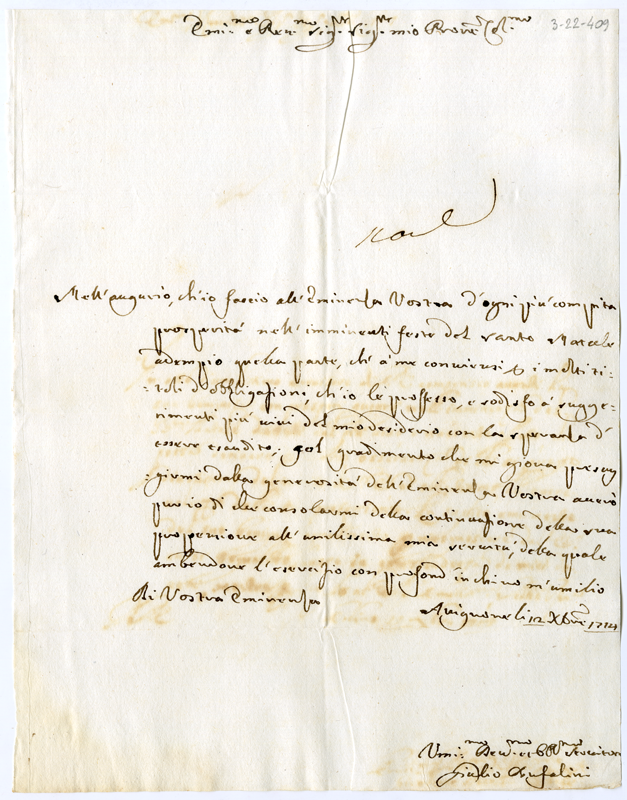 Em.mo e Rev.mo Sig.re Sig.re mio Prone Col.mo
3-22-409
Nell'augurio, ch'io faccio all'Eminenza Vostra d'ogni più compita
prosperità nell'imminenti feste del santo Natale
adempio quella parte, ch'à me conviensi p i molti ti=
:toli d'obbligazioni, ch'io le professo, e sodisfo a' sugge=
rimenti più vivi del mio desiderio con la speranza d'
essere esaudito; Col gradimento che mi giova persua
:girmi dalla generosità dell'Eminenza Vostra averò
pur io di che consolarmi della continuazione della sua
propensione all'umilissima mia servitù, della quale
ambendone l'esercizio con profond'inchino m'umilio
Di Vostra Eminenza
Avignone li 12 Xbre
Umi.mo Dev.mo et Obb.mo Servitore
Giulio Bufalini